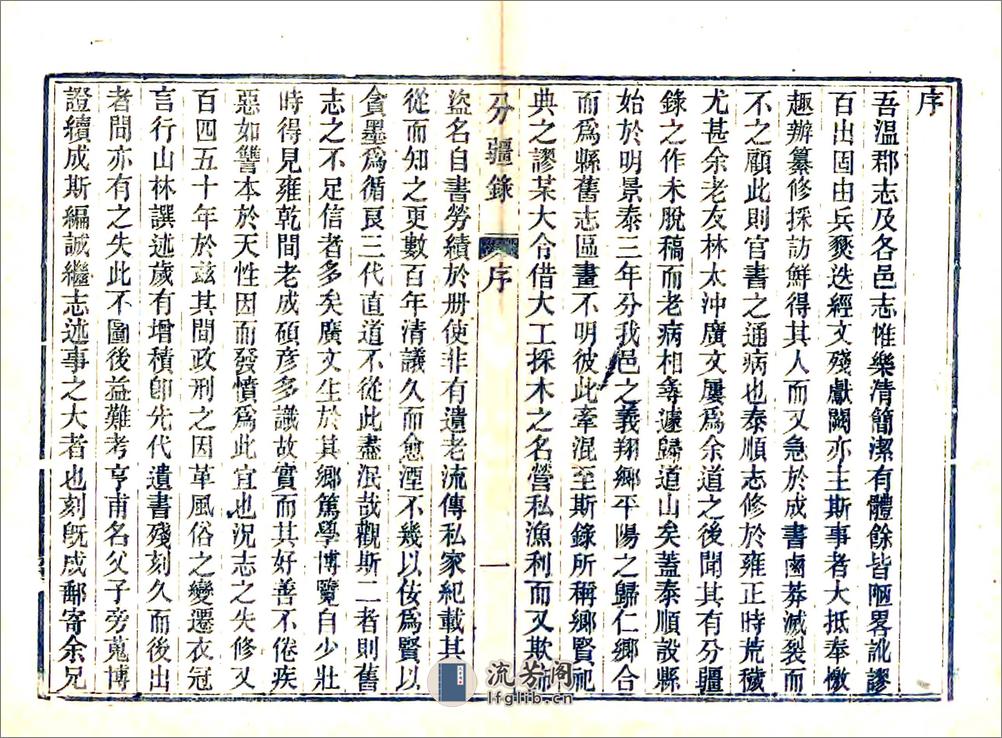 序
吾溫郡志及各邑志惟樂清簡潔有體餘皆陋畧訛謬
百出固由兵燹迭經文殘獻闕亦主斯事者大抵奉檄
趣辦纂修採訪鮮得其人而又急於成書鹵莽滅裂而
不之顧此則官書之通病也泰順志修於雍正時荒穢
尤甚余老友林太沖廣文屢爲余道之後聞其有分疆
錄之作未脫稿而老病相尋遽歸道山矣蓋泰順設縣
始於明景泰三年分我邑之義翔鄉平陽之歸仁鄉合
而爲縣舊志區畫不明彼此牽混至斯錄所稱鄉賢祀
典之謬某大令借大工採木之名營私漁利而又欺
分疆錄
序
一
盜名自書勞績於册使非有遺老流傳私家紀載其
從而知之更數百年清議久而愈湮不幾以佞爲賢以
貪墨爲循良三代直道不從此盡泯哉觀斯二者則舊
志之不足信者多矣廣文生於其鄉篤學博覽自少壯
時得見雍乾間老成碩彥多識故實而其好善不倦疾
惡如讐本於天性因而發憤爲此宜也況志之失修又
百四五十年於茲其間政刑之因革風俗之變遷衣冠
言行山林譔述歲有增積卽先代遺書殘刻久而後出
者問亦有之失此不圖後益難考亨甫名父子旁蒐博
證續成斯編誠繼志述事之大者也刻旣成郵寄余兄
流芳阁
lfglib.cn